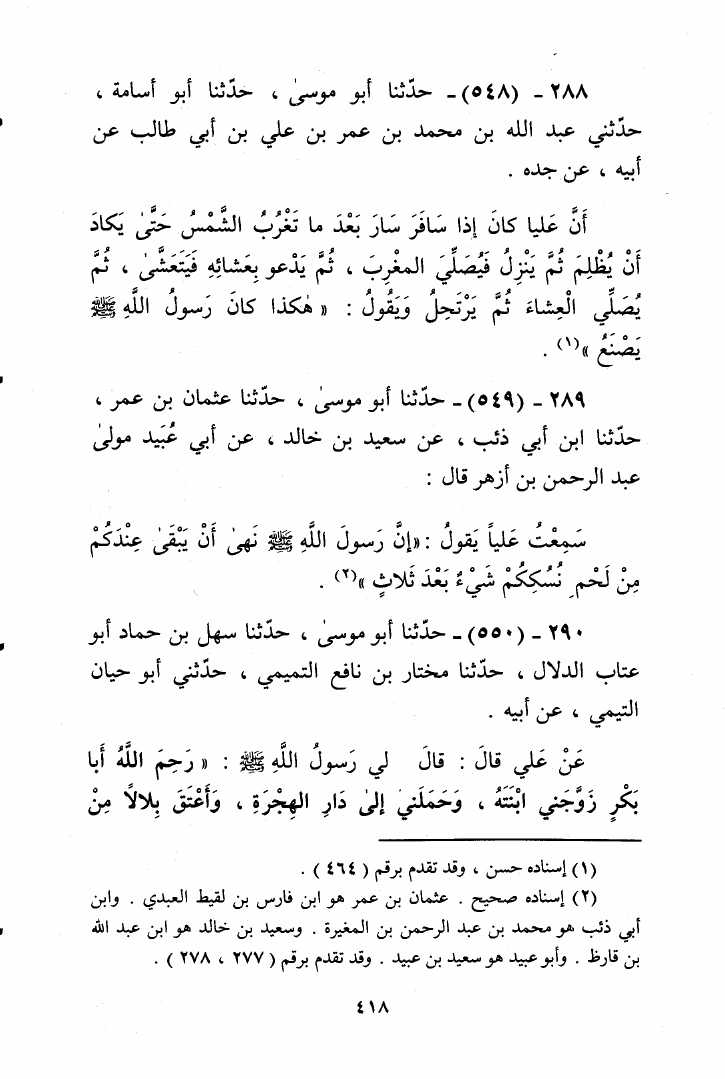 ٢٨٨ - (٥٤٨) - حدّثنا أبو موسىٰ ، حدّثنا أبو أسامة ،
حدّثني عبد الله بن محمد بن عمر بن علي بن أبي طالب عن
أبيه ، عن جده .
أَنَّ عَليا كانَ إذا سَافَرَ سَارَ بَعْدَ ما تَغْرُبُ الشَّمْسُ حَتَّىٰ يَكادَ
أَنْ يُظْلِمَ ثُمَّ يَنْزِلُ فَيُصَلِّيَ المغْرِبَ ، ثُمَّ يَدْعو بِعَشائِهِ فَيَتَعَشَّىٰ ، ثُمَّ
يُصَلِّي الْعِشاءَ ثُمَّ يَرْتَحِلُ وَيَقُولُ : « هٰكذا كانَ رَسولُ اللَّهِ ﷺ
يَصْنَعُ »(١) .
٢٨٩ - (٥٤٩) - حدّثنا أبو موسىٰ ، حدّثنا عثمان بن عمر ،
حدّثنا ابن أبي ذئب ، عن سعيد بن خالد ، عن أبي عُبَيد مولىٰ
عبد الرحمن بن أزهر قال :
سَمِعْتُ عَلياً يَقولُ : «إنَّ رَسولَ اللَّهِ ﷺ نَهىٰ أَنْ يَبْقَىٰ عِنْدَكُمْ
مِنْ لَحْمِ نُسُكِكُمْ شَيْءٌ بَعْدَ ثَلاثٍ »(٢) .
٢٩٠ - (٥٥٠) - حدّثنا أبو موسىٰ ، حدّثنا سهل بن حماد أبو
عتاب الدلال ، حدّثنا مختار بن نافع التميمي ، حدّثني أبو حيان
التيمي ، عن أبيه .
عَنْ عَلي قالَ : قالَ لي رَسولُ اللَّهِ ﷺ : « رَحِمَ اللَّهُ أَبا
بَكْرٍ زَوَّجَني ابْنَتَهُ ، وَحَمَلَنيْ إلىٰ دَارِ الهِجْرَةِ ، وَأَعْتَقَ بِلالًا مِنْ
(١) إسناده حسن ، وقد تقدم برقم ( ٤٦٤ ) .
(٢) إسناده صحيح . عثمان بن عمر هو ابن فارس بن لقيط العبدي . وابن
أبي ذئب هو محمد بن عبد الرحمن بن المغيرة . وسعيد بن خالد هو ابن عبد الله
بن قارظ . وأبو عبيد هو سعيد بن عبيد . وقد تقدم برقم ( ٢٧٧ ، ٢٧٨ ) .
٤١٨